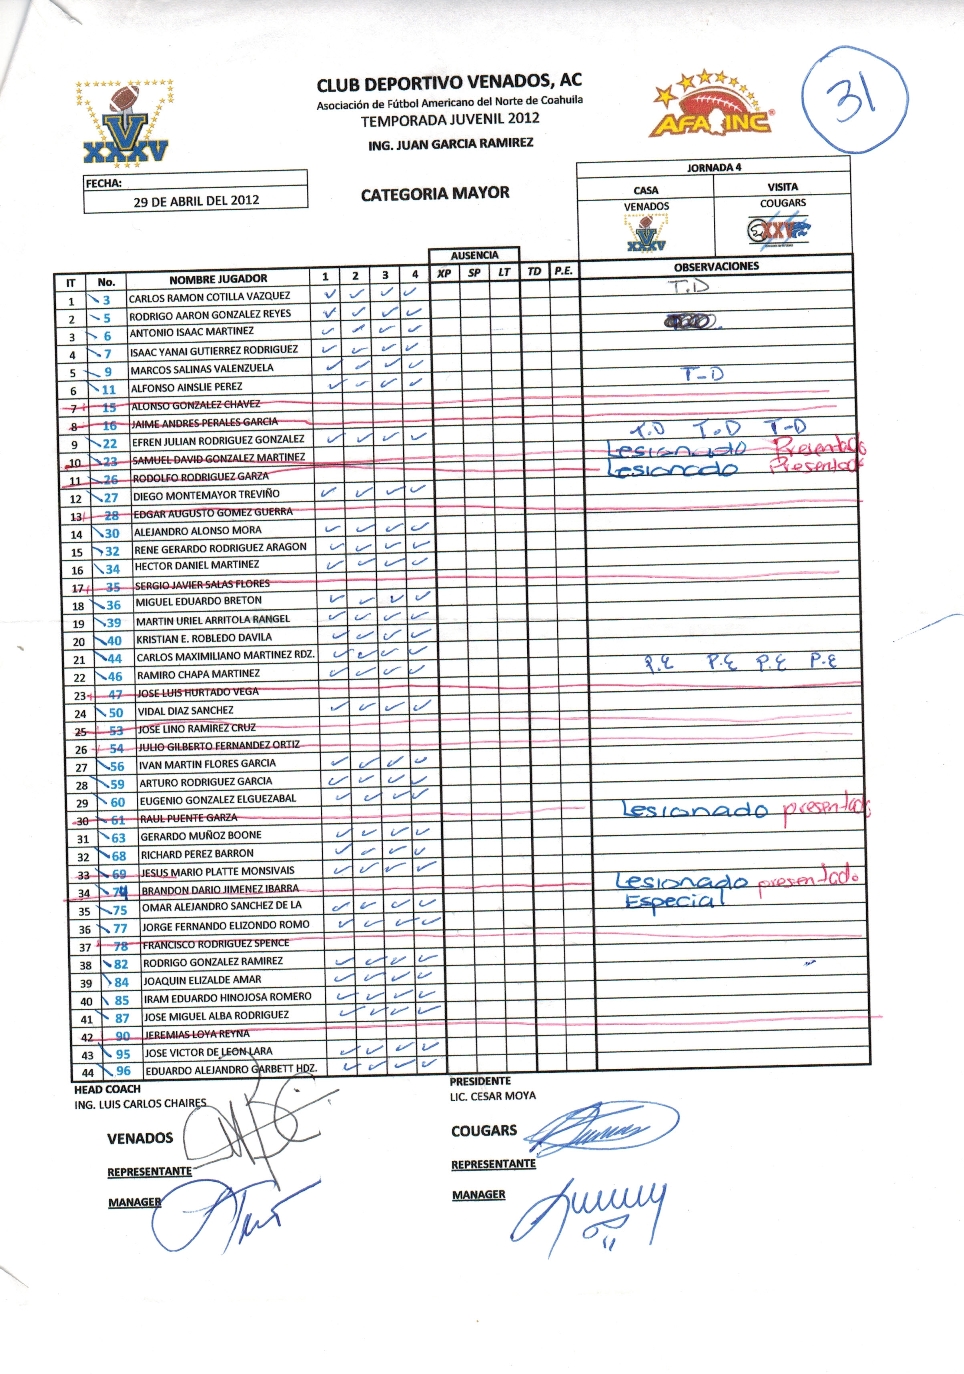 CLUB DEPORTIVO VENADOS, AC
Asociación de Fútbol Americano del Norte de Coahuila
TEMPORADA JUVENIL 2012
ING. JUAN GARCIA RAMIREZ
V
XXXV
AFAINC
31
FECHA:
29 DE ABRIL DEL 2012
CATEGORIA MAYOR
JORNADA 4
CASA VISITA
VENADOS COUGARS
V XXXV
XXV
AUSENCIA
IT No. NOMBRE JUGADOR 1 2 3 4 XP SP LT TD P.E. OBSERVACIONES
1 3 CARLOS RAMON COTILLA VAZQUEZ ✓ ✓ ✓ ✓ T.D
2 5 RODRIGO AARON GONZALEZ REYES ✓ ✓ ✓ ✓
3 6 ANTONIO ISAAC MARTINEZ ✓ ✓ ✓ ✓
4 7 ISAAC YANAI GUTIERREZ RODRIGUEZ ✓ ✓ ✓ ✓
5 9 MARCOS SALINAS VALENZUELA ✓ ✓ ✓ ✓
6 11 ALFONSO AINSLIE PEREZ ✓ ✓ ✓ ✓ T-D
7 15 ALONSO GONZALEZ CHAVEZ
8 16 JAIME ANDRES PERALES GARCIA
9 22 EFREN JULIAN RODRIGUEZ GONZALEZ ✓ ✓ ✓ ✓ T.D T.D T-D
10 23 SAMUEL DAVID GONZALEZ MARTINEZ Lesionado Presentado
11 26 RODOLFO RODRIGUEZ GARZA Lesionado Presentado
12 27 DIEGO MONTEMAYOR TREVIÑO ✓ ✓ ✓ ✓
13 28 EDGAR AUGUSTO GOMEZ GUERRA
14 30 ALEJANDRO ALONSO MORA ✓ ✓ ✓ ✓
15 32 RENE GERARDO RODRIGUEZ ARAGON ✓ ✓ ✓ ✓
16 34 HECTOR DANIEL MARTINEZ ✓ ✓ ✓ ✓
17 35 SERGIO JAVIER SALAS FLORES
18 36 MIGUEL EDUARDO BRETON ✓ ✓ ✓ ✓
19 39 MARTIN URIEL ARRITOLA RANGEL ✓ ✓ ✓ ✓
20 40 KRISTIAN E. ROBLEDO DAVILA ✓ ✓ ✓ ✓
21 44 CARLOS MAXIMILIANO MARTINEZ RDZ. ✓ ✓ ✓ ✓ P.E P.E P.E P.E
22 46 RAMIRO CHAPA MARTINEZ ✓ ✓ ✓ ✓
23 47 JOSE LUIS HURTADO VEGA
24 50 VIDAL DIAZ SANCHEZ ✓ ✓ ✓ ✓
25 53 JOSE LINO RAMIREZ CRUZ
26 54 JULIO GILBERTO FERNANDEZ ORTIZ
27 56 IVAN MARTIN FLORES GARCIA ✓ ✓ ✓ ✓
28 59 ARTURO RODRIGUEZ GARCIA ✓ ✓ ✓ ✓
29 60 EUGENIO GONZALEZ ELGUEZABAL ✓ ✓ ✓ ✓
30 61 RAUL PUENTE GARZA Lesionado presentado
31 63 GERARDO MUÑOZ BOONE ✓ ✓ ✓ ✓
32 68 RICHARD PEREZ BARRON ✓ ✓ ✓ ✓
33 69 JESUS MARIO PLATTE MONSIVAIS ✓ ✓ ✓ ✓
34 74 BRANDON DARIO JIMENEZ IBARRA Lesionado presentado
35 75 OMAR ALEJANDRO SANCHEZ DE LA ✓ ✓ ✓ ✓ Especial
36 77 JORGE FERNANDO ELIZONDO ROMO ✓ ✓ ✓ ✓
37 78 FRANCISCO RODRIGUEZ SPENCE
38 82 RODRIGO GONZALEZ RAMIREZ ✓ ✓ ✓ ✓
39 84 JOAQUIN ELIZALDE AMAR ✓ ✓ ✓ ✓
40 85 IRAM EDUARDO HINOJOSA ROMERO ✓ ✓ ✓ ✓
41 87 JOSE MIGUEL ALBA RODRIGUEZ ✓ ✓ ✓ ✓
42 90 JEREMIAS LOYA REYNA
43 95 JOSE VICTOR DE LEON LARA ✓ ✓ ✓ ✓
44 96 EDUARDO ALEJANDRO GARBETT HDZ. ✓ ✓ ✓ ✓
HEAD COACH
ING. LUIS CARLOS CHAIRES
PRESIDENTE
LIC. CESAR MOYA
VENADOS
COUGARS
REPRESENTANTE
REPRESENTANTE
MANAGER
MANAGER